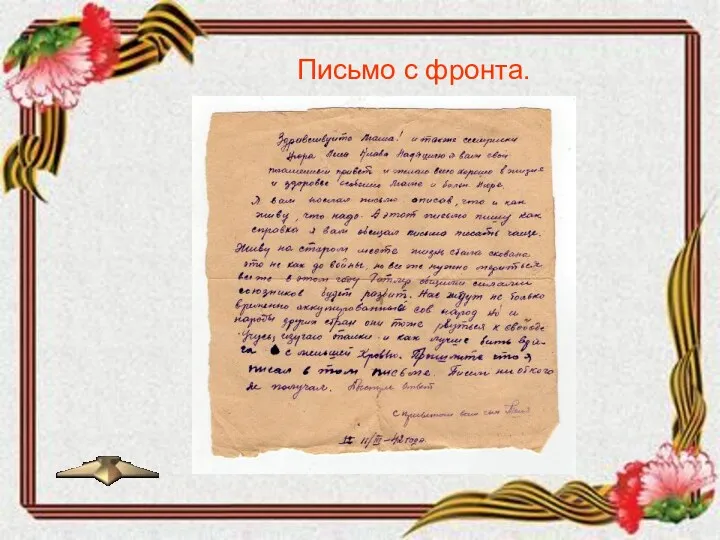 Письмо с фронта.
Здравствуйте Мама! и также сестрички
Нюра Лиза Клава Надя шлю я вам свой
пламенный привет и желаю всего хорошего в жизне
и здоровье особенно Маме и
Я вам послал письмо описав, что и как
живу, что надо. А этот письмо пишу как
справка я вам обещал письма писать чаще.
Живу на старом месте жизнь стала
это не как до войны, но все же нужно
все же в этом году Гитлер общими силами
союзников будет разбит. Нас ждут не только
временно оккупированный сов народ но и
народы других стран они тоже рвуться к свободе
Учусь, изучаю танки и как лучше бить вра-
га с меньшей кровью. Пришлите что я
писал в том письме. Писем ни от кого
не получал. Жду ответ
с приветом ваш сын
11/III-42 года